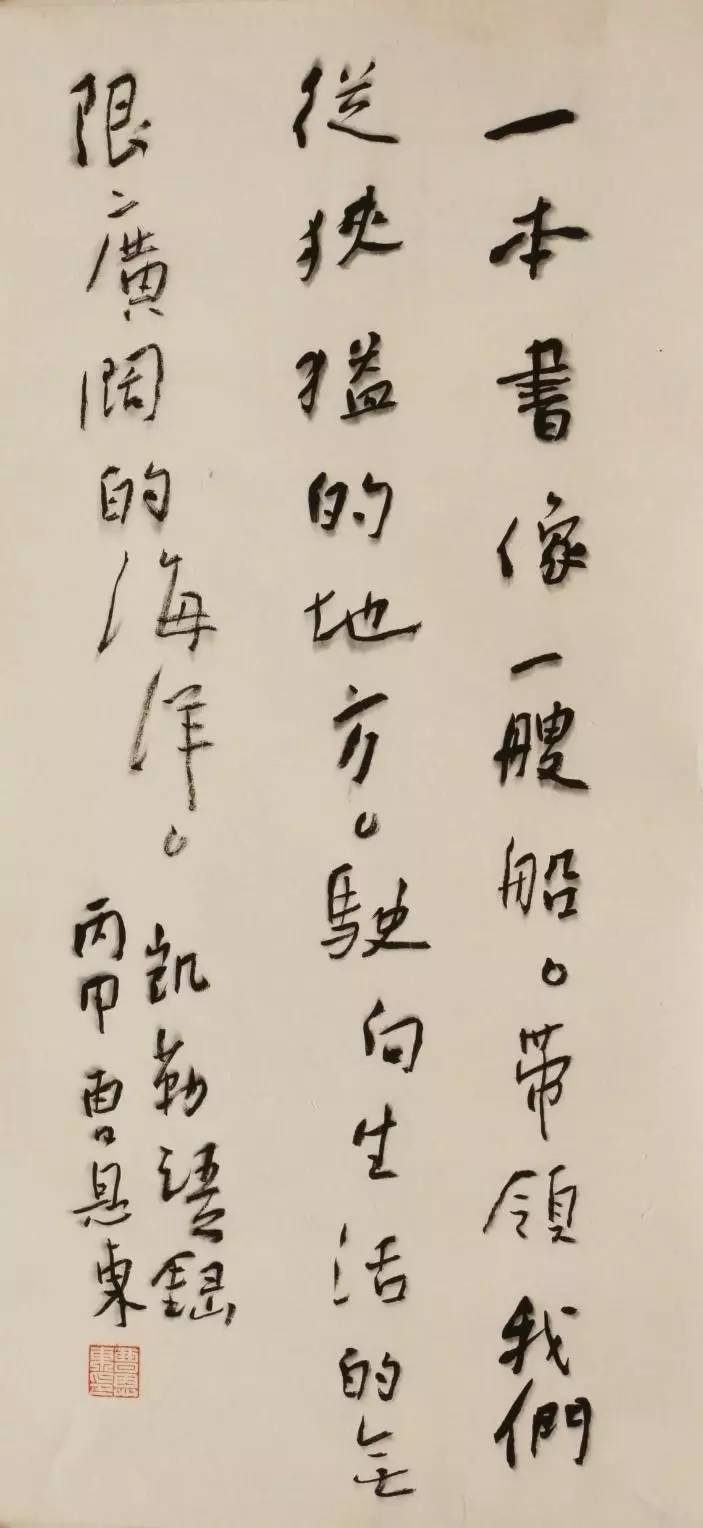 一本書像一艘船。帶領我們
從狹隘的地方。駛向生活的无
限廣阔的海洋。
凱勒語錄
丙申 曹恩東